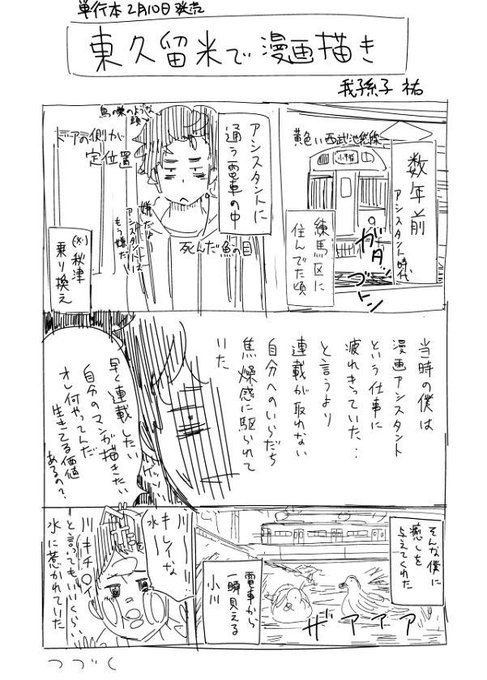 単行本2月10日発売
東久留米で漫画描き
我孫子 祐
数年前
アシスタント時代
黄色い西武池袋線
小手指
練馬区に
住んでた頃
ガタ
ゴトン
アシスタントに
通う電車の中
鳥の巣のような
頭
死んだ魚の目
嫌だ
アシスタントは
もう嫌だ
ドアの側が
定位置
秋津
乗り換え
当時の僕は
漫画アシスタント
という仕事に
疲れきっていた‥
と言うより
連載が取れない
自分へのいらだち
焦燥感に駆られて
いた
早く連載したい
自分のマンガが描きたい
オレ何やってんだ
生きてる価値
あるの?
そんな僕に
癒しを
与えてくれた
ザァァァ
電車から
一瞬見える
小川
川
キレイな
水
川キチ〇イ
と言ってもいいくらい
水に惹かれていた
つづく